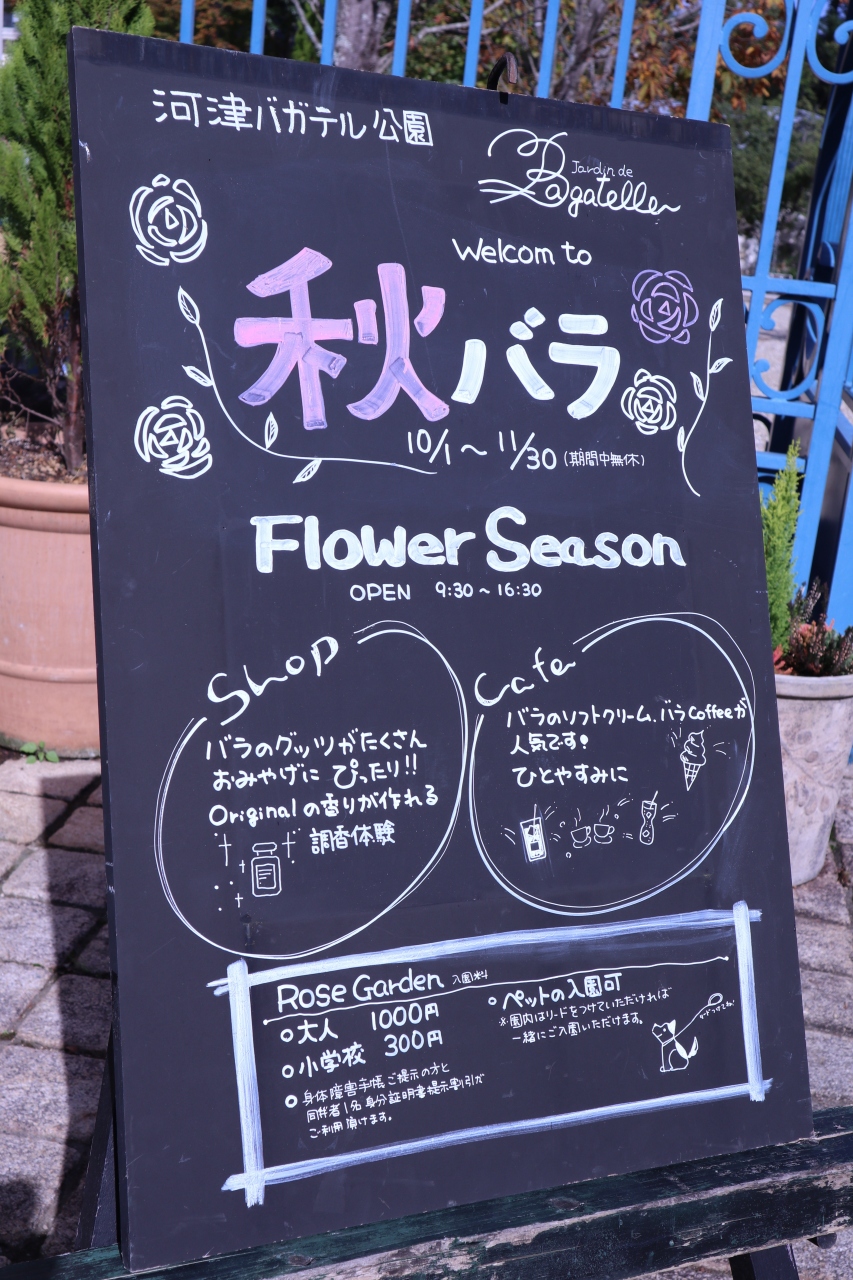 河津バガテル公園
Jardin de
Bagatelle
Welcom to
秋バラ
10/1～11/30 (期間中無休)
Flower Season
OPEN 9:30～16:30
Shop
バラのグッツがたくさん
おみやげに ぴったり!!
Originalの香りが作れる
調香体験
Cafe
バラのソフトクリーム、バラCoffeeが
人気です!
ひとやすみに
Rose Garden 入園料
大人 1000円
小学校 300円
身体障害手帳ご提示の方と
同伴者1名身分証明書提示割引が
ご利用頂けます。
ペットの入園可
※園内はリードをつけていただければ
一緒にご入園いただけます。